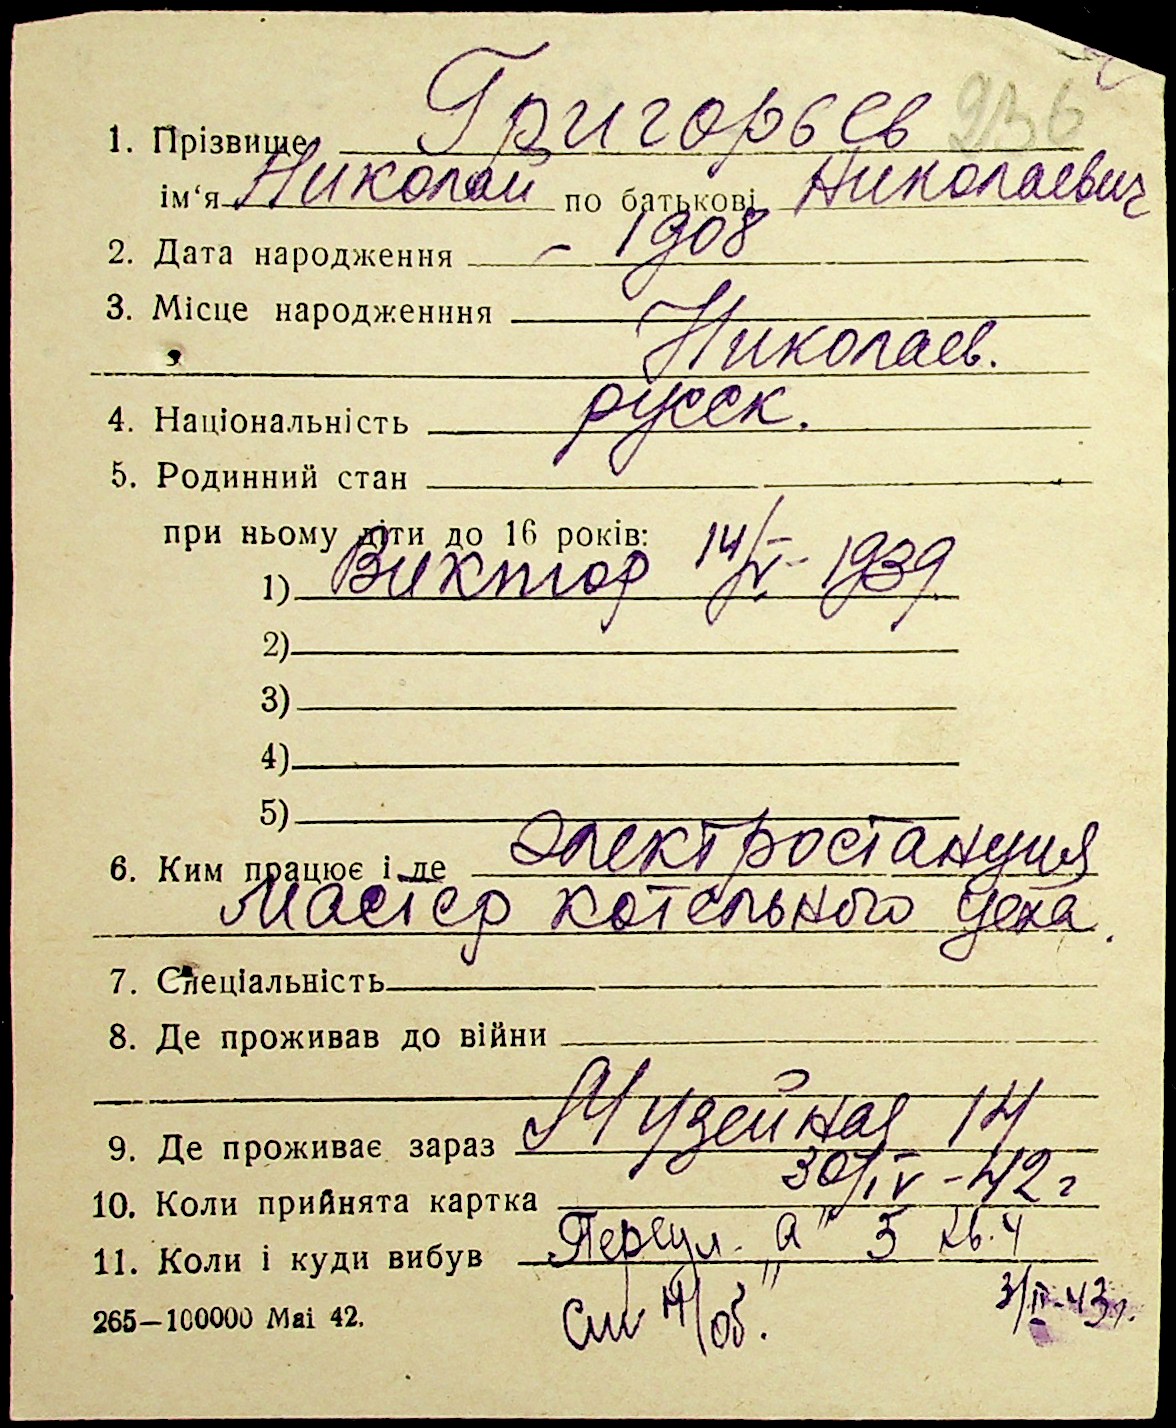 236
1. Прізвище Григорьев
ім‘я Николай по батькові Николаевич
2. Дата народження - 1908
3. Місце народженння
Николаев.
4. Національність русск.
5. Родинний стан
при ньому діти до 16 років:
1) Виктор 14/IV- 1939.
2)
3)
4)
5)
6. Ким працює і де Электростанция
Мастер котельного цеха.
7. Спеціальність
8. Де проживав до війни
9. Де проживає зараз Музейная 14
10. Коли прийнята картка 30/IV-42 г
11. Коли і куди вибув Переул. „А" 5 кв. 4
265—100000 Маі 42. См н/об. 3/IV-43г.